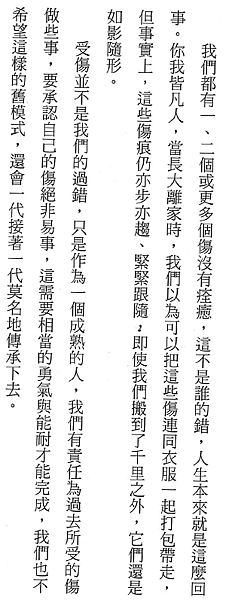 我們都有一、二個或更多個傷沒有痊癒，這不是誰的錯，人生本來就是這麼回
事。你我皆凡人，當長大離家時，我們以為可以把這些傷連同衣服一起打包帶走，
但事實上，這些傷痕仍亦步亦趨、緊緊跟隨；即使我們搬到了千里之外，它們還是
如影隨形。
受傷並不是我們的過錯，只是作為一個成熟的人，我們有責任為過去所受的傷
做些事，要承認自己的傷絕非易事，這需要相當的勇氣與能耐才能完成，我們也不
希望這樣的舊模式，還會一代接著一代莫名地傳承下去。